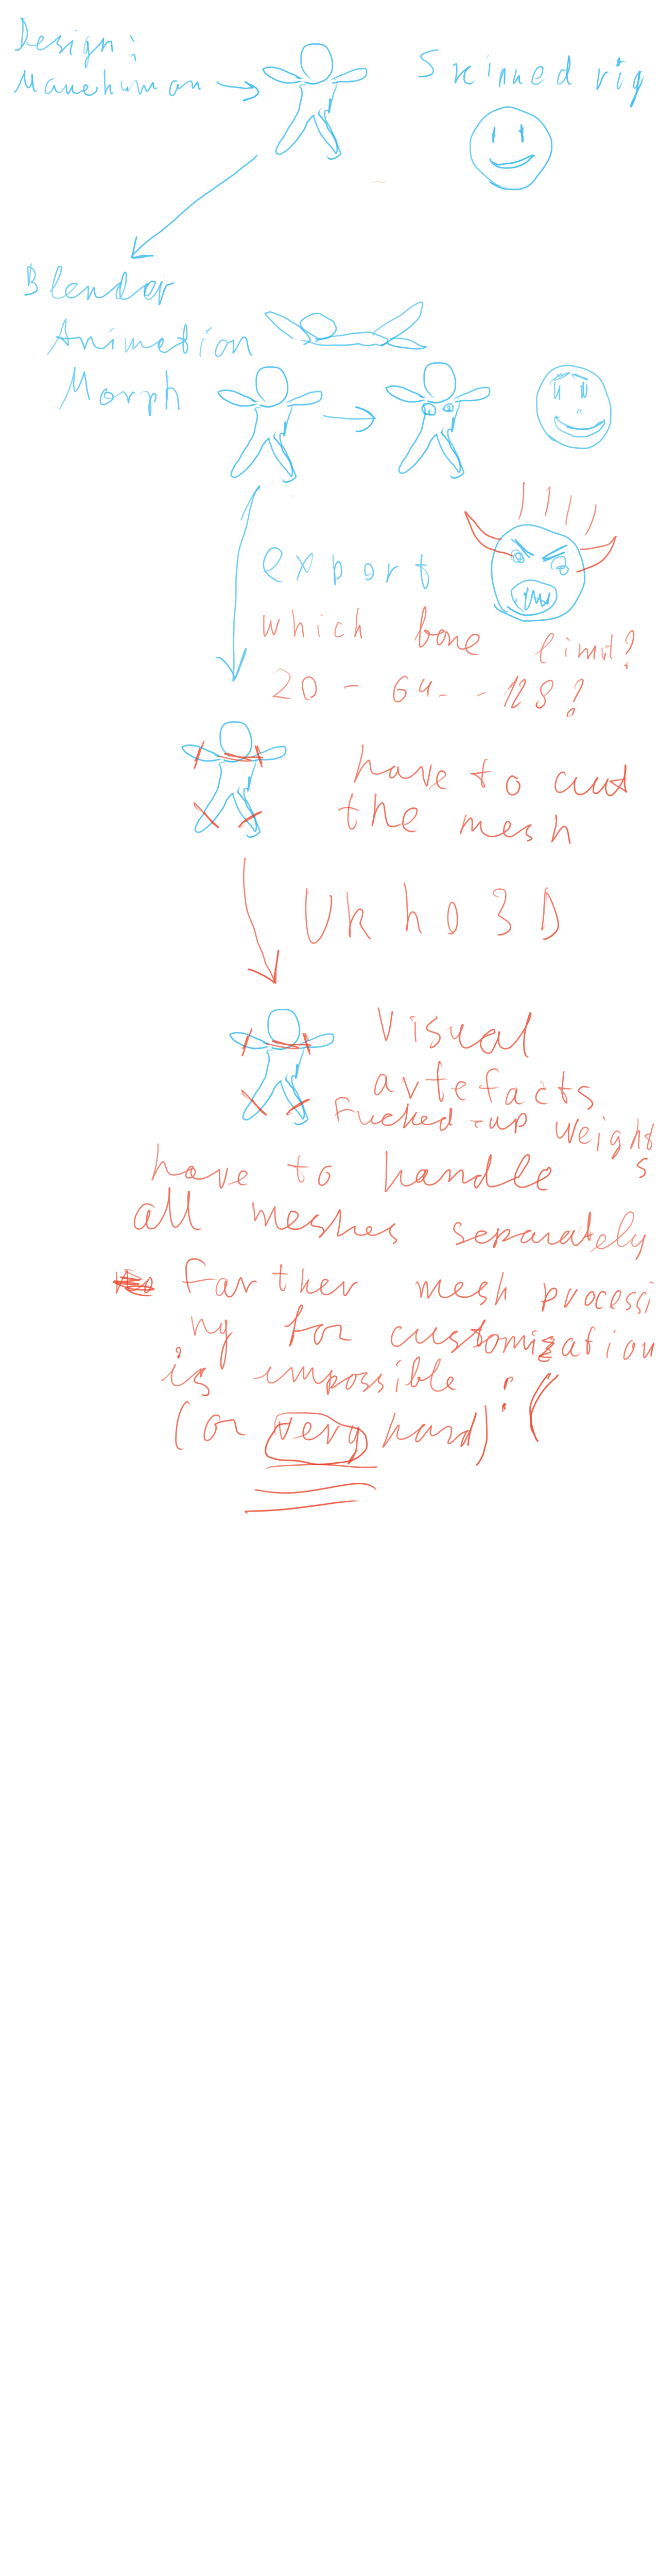 Design:
Makehuman
Skinned rig
Blender
Animation
Morph
export
which bone limit?
20 - 64 - - 128?
have to cut
the mesh
Urho3D
Visual
artefacts
Fucked-up weights
have to handle
all meshes separately
farther mesh processi
ng for customization
is impossible :(
(or very hard)